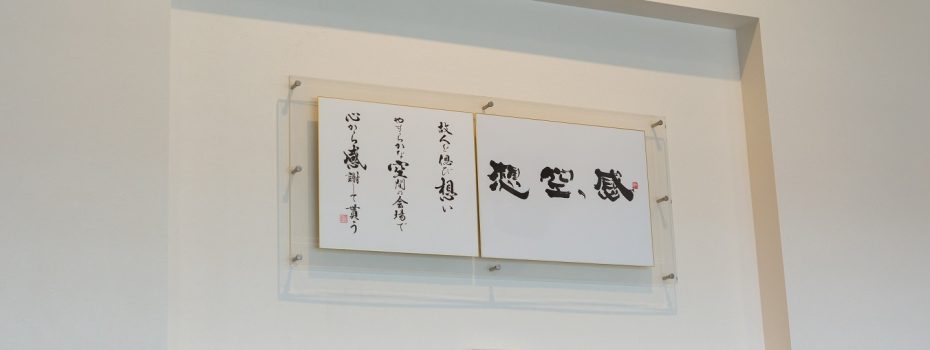 想空感
故人を偲び想い
やすらかな空間の会場で
心から感謝して貰う